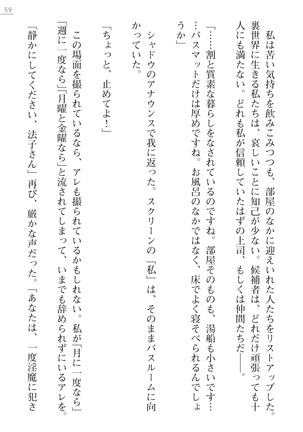 59
　私は苦い気持ちを飲みこみつつも、部屋のなかに迎えいれた人たちをリストアップした。
裏世界に生きる私たちは、哀しいことに知己が少ない。候補者は、どれだけ頑張っても十
人にも満たない。どれも私が信頼していたはずの上司、もしくは仲間たちだ――。
「……割と質素な暮らしをなされているのですね。部屋そのものも、湯船も小さいです…
…バスマットだけは厚めですね。お風呂のなかではなく、床でよく寝そべられるんでしょ
うか」
　シャドウのアナウンスで我に返った。スクリーンの「私」は、そのままバスルームに向
かっていた。
「ちょっと、止めてよ！」
　この場面を撮られているなら、アレも撮られているかもしれない。私が「月に一度なら」
「週に一度なら」「月曜と金曜なら」と流されてしまって、いまでも辞められずにいるアレを。
「静かにしてください、法子さん」再び、厳かな声だった。「あなたは、一度淫魔に犯さ